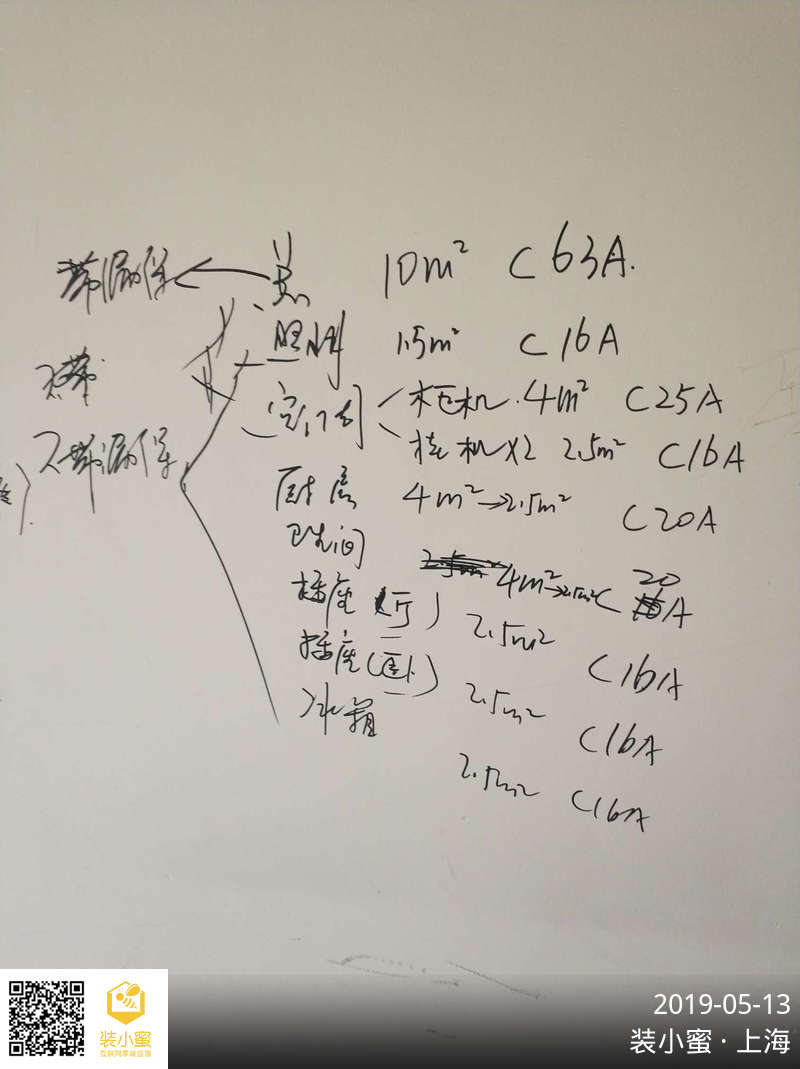 带漏保 总 10m² C63A.
照明 1.5m² C16A
不带 空调 柜机 4m² C25A
挂机x2 2.5m² C16A
不带漏保
厨房 4m²→2.5m² C20A
卫生间 4m²→2.5m² C20A
插座(厅) 2.5m² C16A
插座(卧) 2.5m² C16A
冰箱 2.5m² C16A
装小蜜
2019-05-13
装小蜜·上海